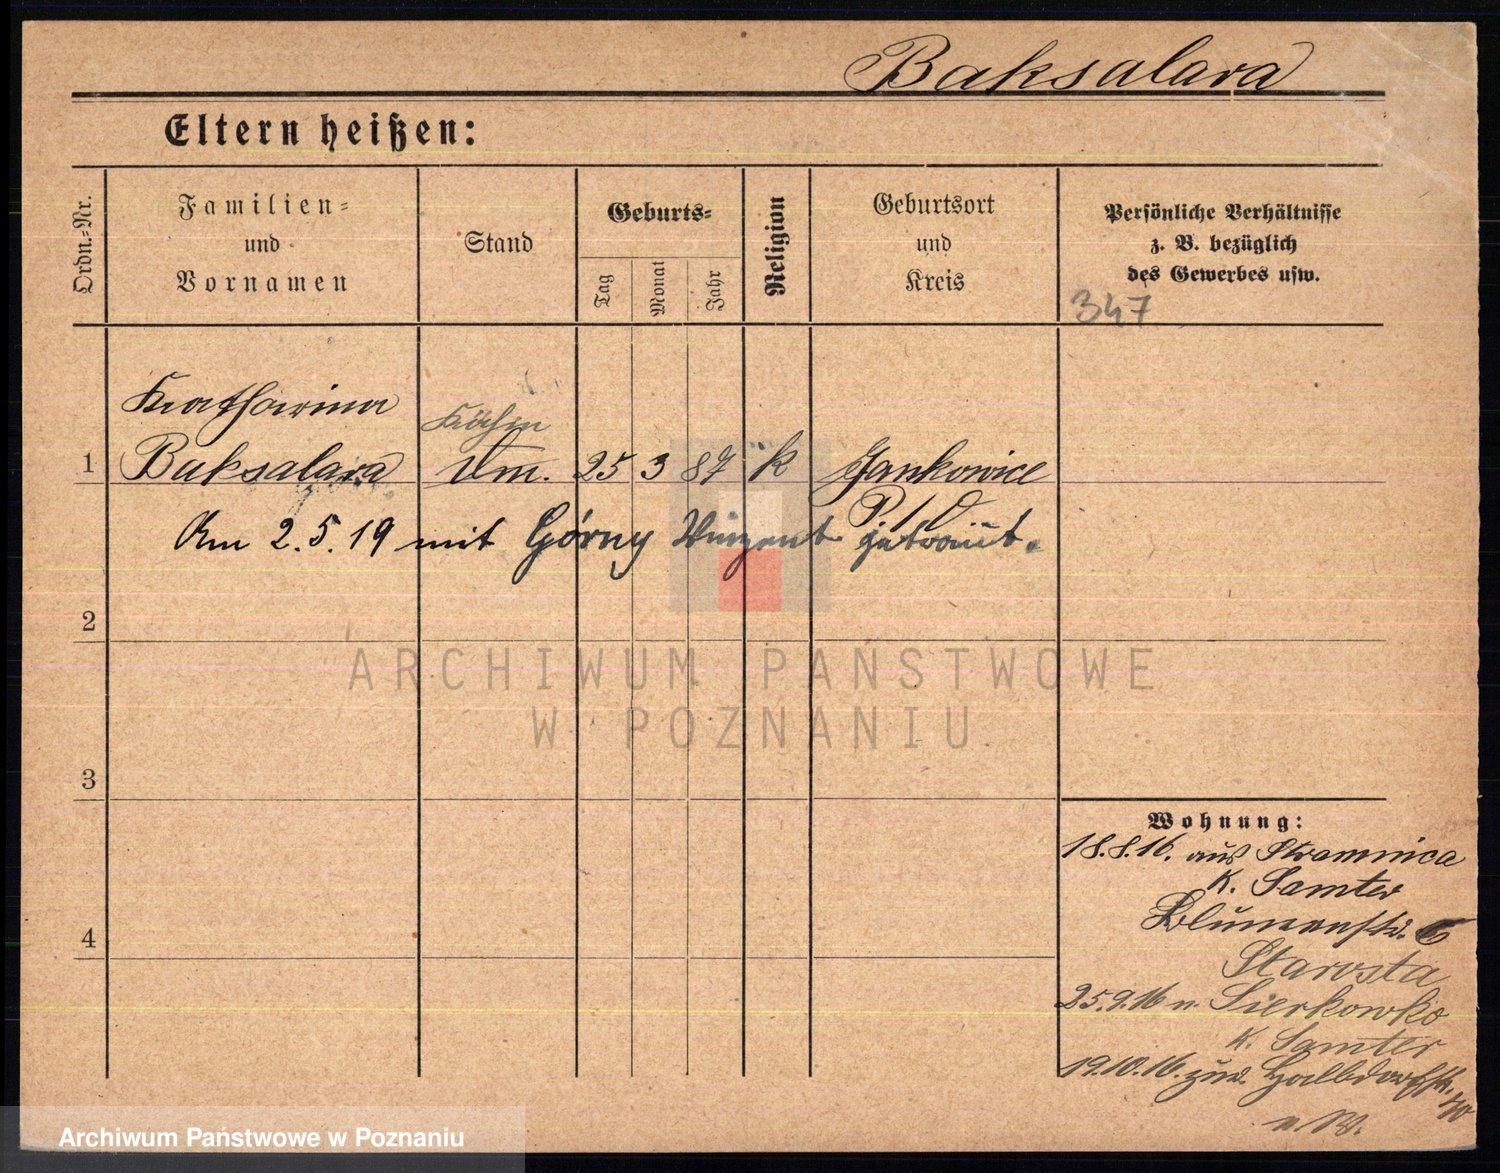 Baksalara
Eltern heißen:
Ordn.-Nr.
Familien-
und
Vornamen
Stand
Geburts-
Tag
Monat
Jahr
Religion
Geburtsort
und
Kreis
Persönliche Verhältnisse
z. B. bezüglich
des Gewerbes usw.
347
Katharina
Köchin
1 Baksalara 25 3 87 k Jankowice
P. O
Am 2.5.19 mit Górny Vinzent getraut.
2
ARCHIWUM PAŃSTWOWE
W POZNANIU
3
Wohnung:
18.8.16. aus
K. Samter
Blumenstr. 6
Starosta
4
25.9.16 n. Sierkowko
K. Samter
19.10.16. zur. Halbdorfstr.
n. W.
Archiwum Państwowe w Poznaniu